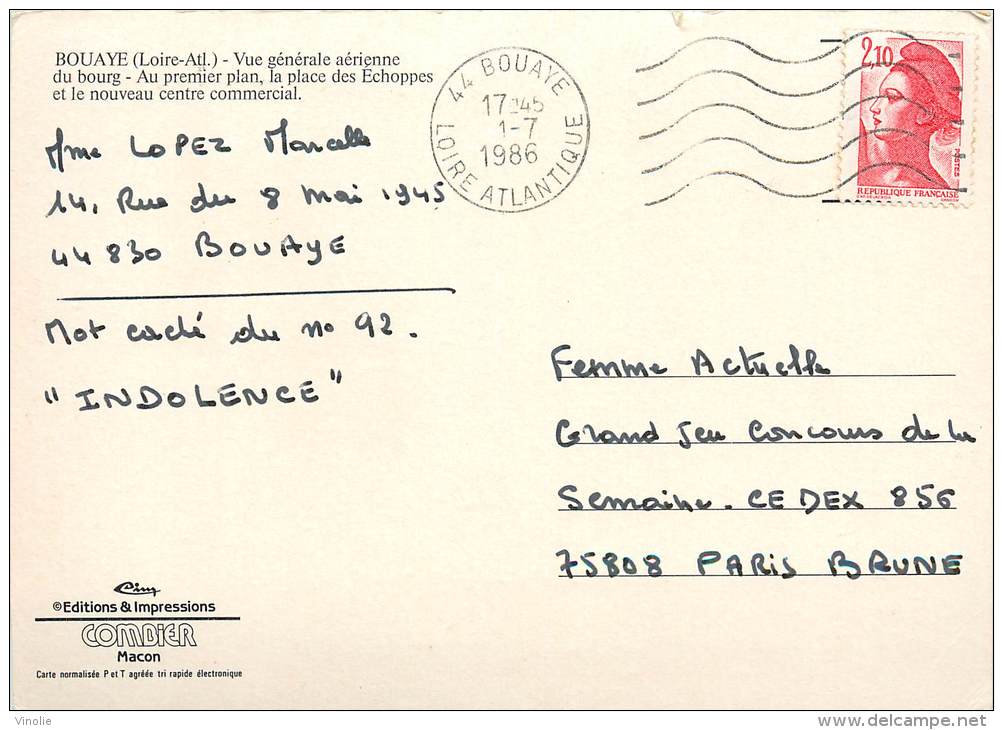 BOUAYE (Loire-Atl.) - Vue générale aérienne
du bourg - Au premier plan, la place des Échoppes
et le nouveau centre commercial.
44 BOUAYE
17-45
1-7
1986
LOIRE ATLANTIQUE
2,10
POSTES
REPUBLIQUE FRANÇAISE
Mme LOPEZ Marcelle
14, Rue du 8 Mai 1945
44830 BOUAYE
Mot caché du no 92.
"INDOLENCE"
Femme Actuelle
Grand Jeu Concours de la
Semaine. CEDEX 856
75808 PARIS BRUNE
Cim
©Editions & Impressions
COMBIER
Macon
Carte normalisée P et T agréée tri rapide électronique
Vinolie
delcampe.net